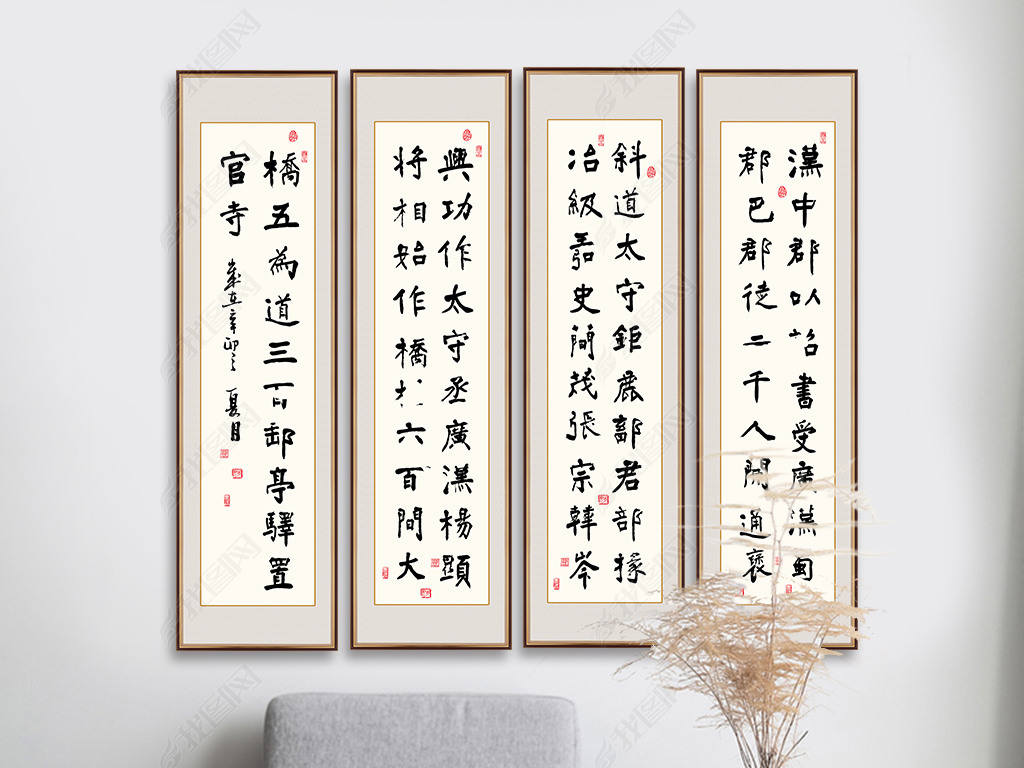 漢中郡以詔書受廣漢蜀
郡巴郡徒二千人開通褒
斜道太守鉅鹿鄐君部掾
冶級弄史荀茂張宗韓岑
興功作太守丞廣漢楊顯
將相始作橋格六百間大
橋五為道三百郵亭驛置
官寺
歲在辛卯之夏月